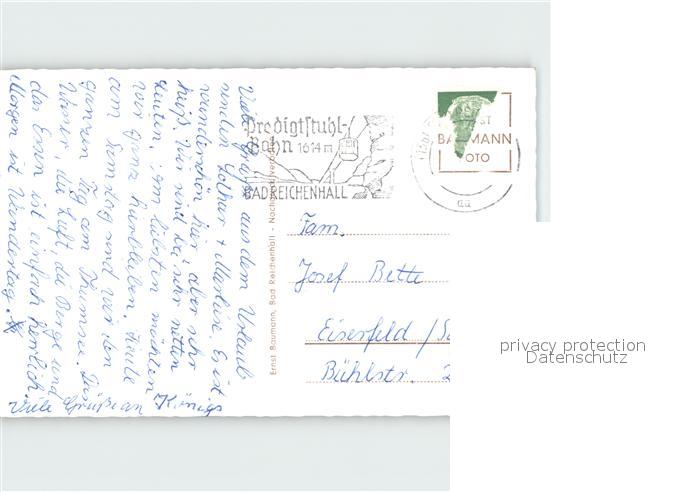 Viele Grüße aus dem Urlaub
senden Lothar + Marlise. Es ist
wunderschön hier, aber sehr
heiß. Wir sind bei sehr netten
Leuten. Am liebsten möchten
wir ganz hierbleiben. Heute
am Sonntag sind wir den
ganzen Tag am Thumsee. Das
Wasser, die Luft, die Berge und
das Essen ist einfach herrlich.
Morgen ist Wandertag.
Viele Grüße an Königs
Predigtstuhl-
Bahn 1614 m
BAD REICHENHALL
BAUMANN
FOTO
Ernst Baumann, Bad Reichenhall - Nachdruck verboten
Fam.
Josef Bette
Eiserfeld /S
Bühlstr. 2
privacy protection
Datenschutz